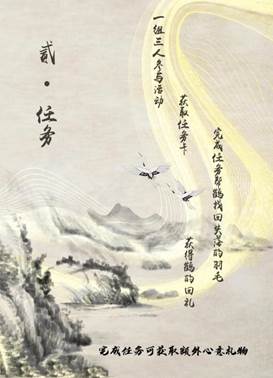 贰·任务
一组三人参与活动
获取任务卡
完成任务帮鹤找回丢落的羽毛
获得鹤的回礼
完成任务可获取额外心意礼物